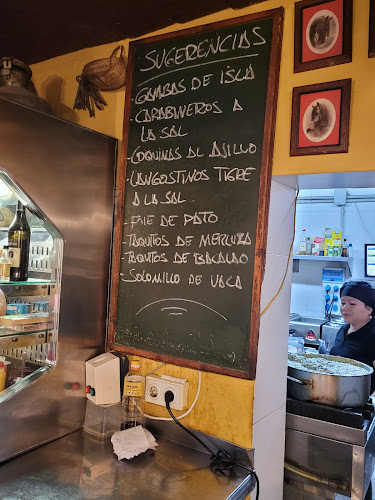 SUGERENCIAS
- GAMBAS DE ISLA
- CARABINEROS A
LA SAL
- COQUINAS AL AJILLO
- LANGOSTINOS TIGRE
A LA SAL
- PATO
- TAQUITOS DE MERLUZA
- TAQUITOS DE BACALAO
- SOLOMILLO DE VACA